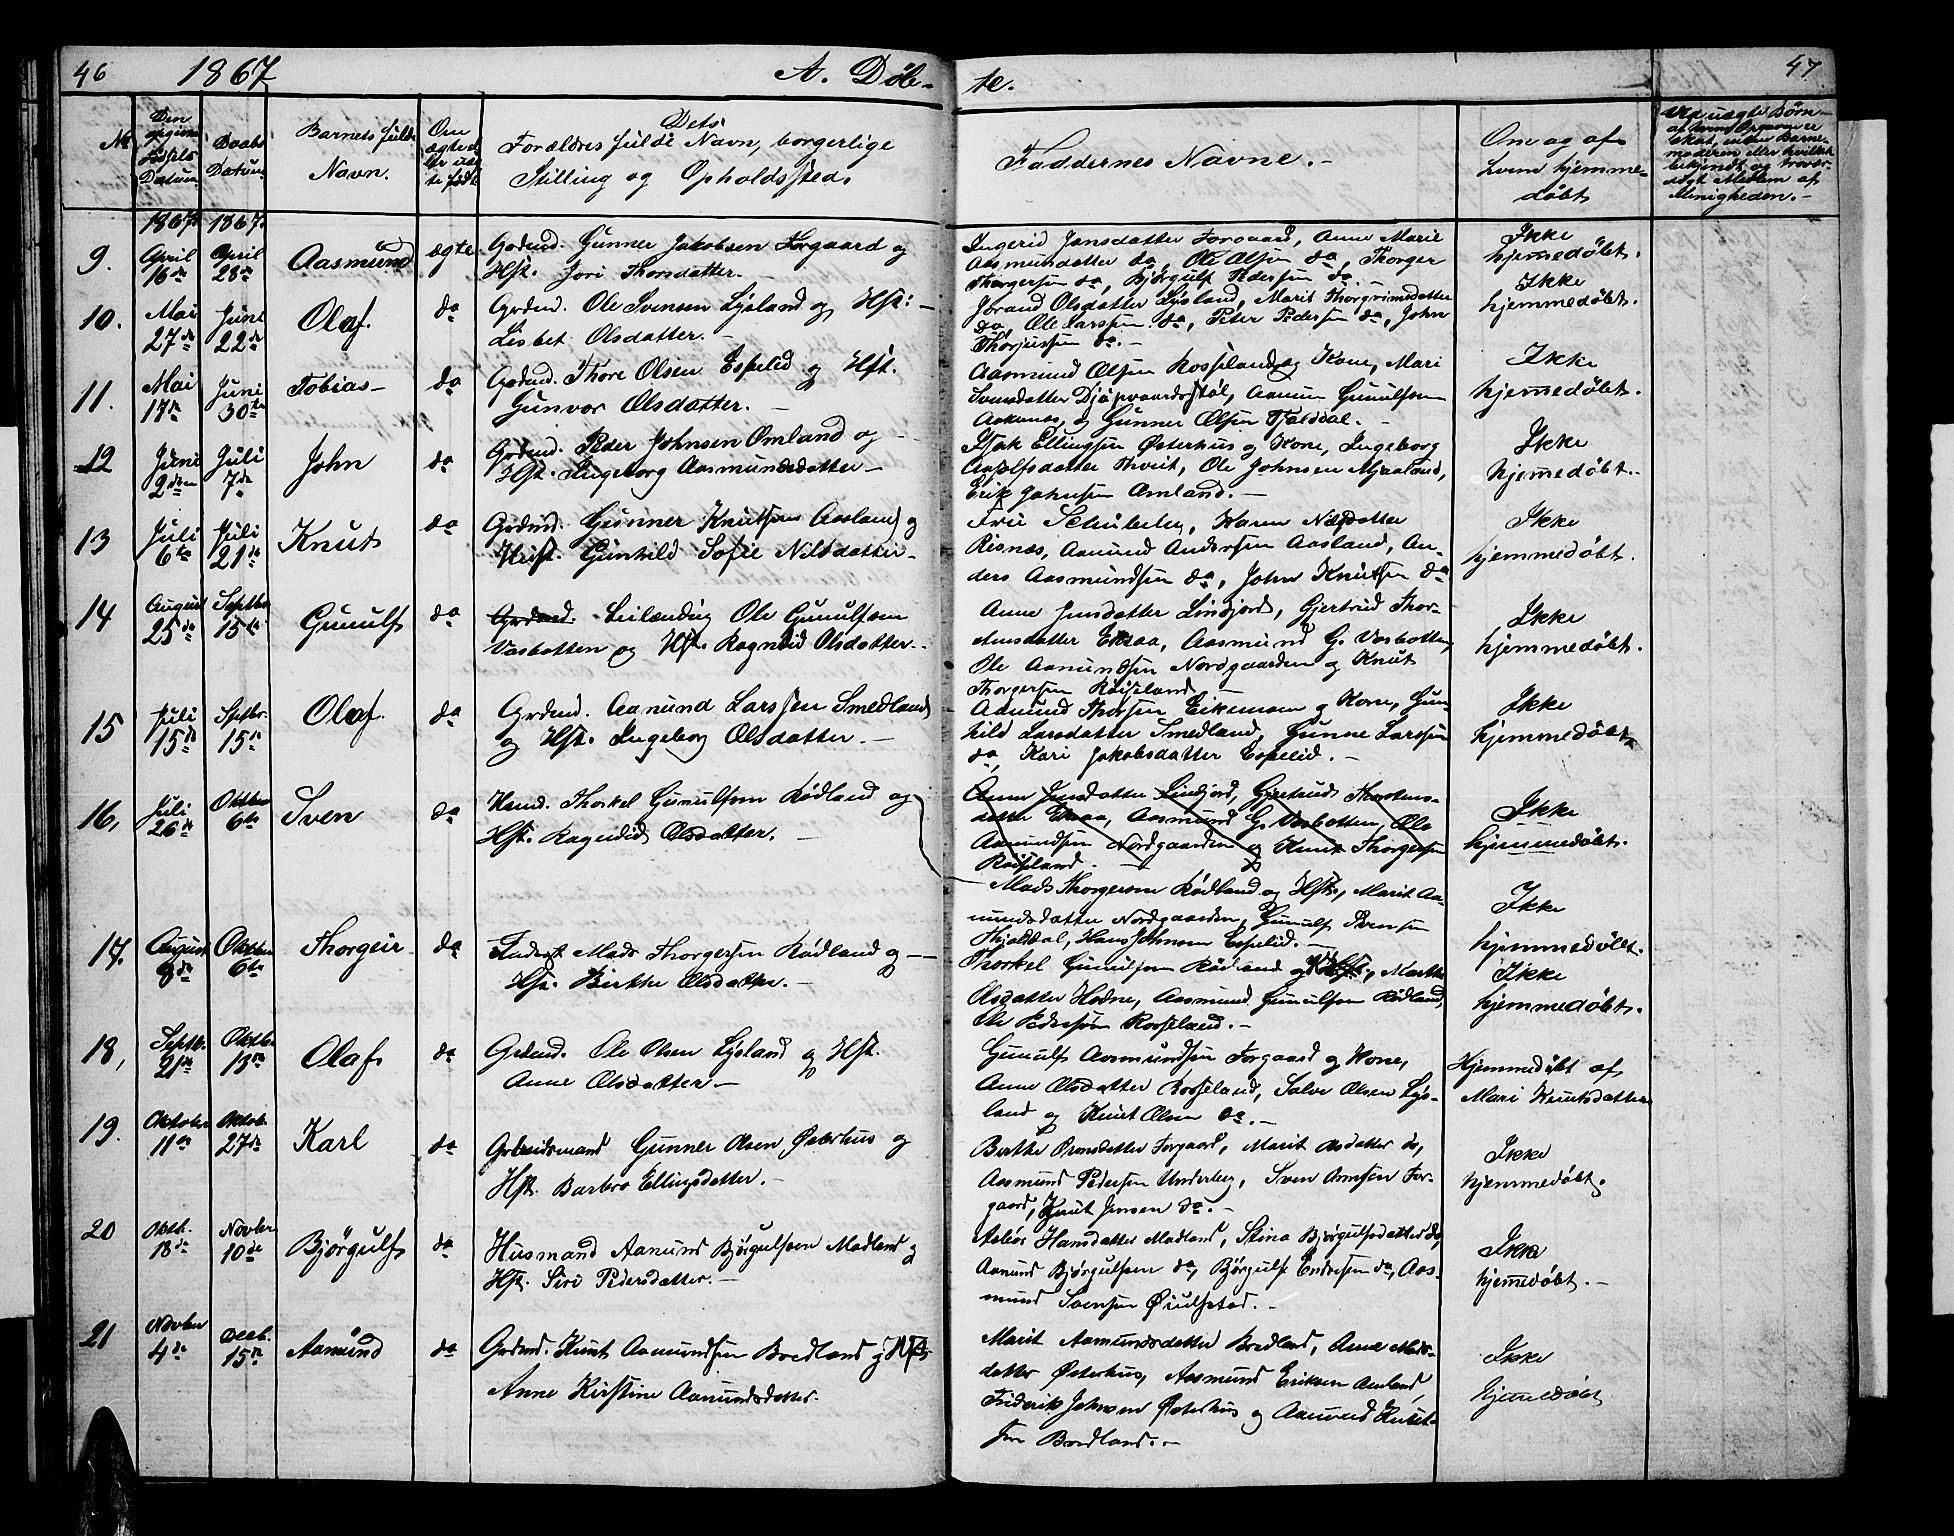 46 1867 A. Døb-
te. 47
No
Den opgivne Fødsels Datum.
Daabs Datum.
Barnets fulde Navn.
Om ægte eller uægte født
Dets Forældres fulde Navn, borgerlige Stilling og Opholdssted.
Faddernes Navne.-
Om og af hvem hjemmedøbt
Ved uægte Børn
Menigheden.-
1867. 1867.
9. April 16de April 28de Aasmund ægte Grdmd. Gunner Jakobsen Forgaard og
Hst. Jori Thorsdatter.-
Ingerid Jansdatter Forgaard, Anne Marie
Aasmundsdatter do, Ole Olsen do, Thorger
Thorgersen do, Bjørgulf Pedersen do.-
Ikke
hjemmedøbt.
10. Mai 27de Juni 22de Olaf. do Grdmd. Ole Svensen Lysland og Hst:-
Lisbet Olsdatter.-
Jorand Olsdatter Lysland, Marit Thorgrimsdatter
do, Ole Larssen do, Peter Pedersen do, John
Thorjussen do.-
Ikke
hjemmedøbt.
11. Mai 17de Juni 30te Tobias- do Grdmd. Thore Olsen Espelid og Hst.
Gunvor Olsdatter.-
Aasmund Olsen Rosseland og Kone, Mari
Svensdatter Aanun Gunulfsen
Askenes, og Gunner Olsen Fjalddal.-
Ikke
hjemmedøbt.
12 Juni 2den Juli 7de John do Grdmd. Peder Johnsen Omland og-
Hst. Ingeborg Aasmundsdatter-
Isak Ellingsen Østerhus og Kone, Ingeborg
Tveit, Ole Johnsen Mjaaland,
Erik Johnsen Omland.-
Ikke
hjemmedøbt.
13 Juli 6te Juli 21de Knut do Grdmd. Gunner Knutsen Aasland og
Hust. Gunhild Sofie Nilsdatter-
Karen Nilsdatter
Risnæs, Aanund Andersen Aasland, An-
ders Aasmundsen do, John Knutsen do
Ikke
hjemmedøbt.
14 August 25de Septbr 15de Gunulf do Grdmd. Leilænding Ole Gunulfsen
Vasbotten og Hst. Ragnild Olsdatter.-
Anne Jensdatter Lindjord, Gjertrud Thor-
stensdatter Ekraa, Aasmund G. Vasbotten,
Ole Aanundsen Nordgaarden og Knut
Thorgersen Røiseland.-
Ikke
hjemmedøbt.
15 Juli 15de Septbr. 15de Olaf. do Grdmd. Aanund Larssen Smedland
og Hst. Ingeborg Olsdatter.-
Aanund Thorsen Eikemoen og Kone, Gun-
hild Larsdatter Smedland, Gunne Larssen
do, Kari Jakobsdatter Espelid.-
Ikke
hjemmedøbt.
16, Juli 26de Oktbr 6te Sven do Husmd. Thorkel Gunulfsen Rødland og
Hst. Ragnild Olsdatter.-
Anne Jensdatter Lindjord, Gjertrud Thorstens-
datter Ekraa, Aasmund G. Vasbotten, Ole
Aanundsen Nordgaarden og Knut Thorgersen
Røiseland.-
-Mads Thorgersen Rødland og Hst., Marit Aa-
nundsdatter Nordgaarden, Gunulf Svensen
Fjalddal, Hans Johnsen Espelid.-
Ikke
hjemmedøbt.
Ikke
hjemmedøbt.
17. August 8de Oktbr 6te Thorgeir do Inderst Mads Thorgersen Rødland og-
Hst. Birthe Olsdatter.-
Thorkel Gunulfsen Rødland og Hst., Marthe
Olsdatter Hodne, Aasmund Gunulfsen Rødland,
Ole Pedersen Rosseland.-
Ikke
hjemmedøbt.
18, Septbr. 21de Oktbr. 13de Olaf do Grdmd. Ole Olsen Lysland og Hst.
Anne Olsdatter-
Gunulf Aasmundsen Forgaard og Kone,
Anne Olsdatter Rosseland, Salve Olsen Lys-
land og Knut Olsen do.-
Hjemmedøbt af
Mari Knutsdatter
19. Oktober 11de Oktob. 27de Karl do Arbeidsmand Gunner Olsen Østerhus og
Hst. Barbro Ellingsdatter.-
Berthe Ormsdatter Forgaard, Marit Olsdatter do,
Aasmund Pedersen Underberg, Sven Ormsen For-
gaard, Knut Jensen do.-
Ikke
hjemmedøbt.
20 Oktb. 18de Novber 10de Bjørgulf do Husmand Aanund Bjørgulfsen Madland og
Hst. Siri Pedersdatter.-
Aslou Hansdatter Madland, Stina Bjørgulfsdatter do,
Aanund Bjørgulfsen do, Bjørgulf Endresen do, Aas-
mund Svensen
Ikke
hjemmedøbt.-
21 Novber 4de Decb. 15de Aanund do Grdmd. Knut Aanundsen Bredland og Hst
Anne Kirstine Aanundsdatter.
Marit Aanundsdatter Bredland, Anne Mads-
datter Østerhus, Aasmund Eriksen Omland,
Friderik Johnsen Østerhus og Aanund Knut-
sen Bredland.-
Ikke
hjemmedøbt